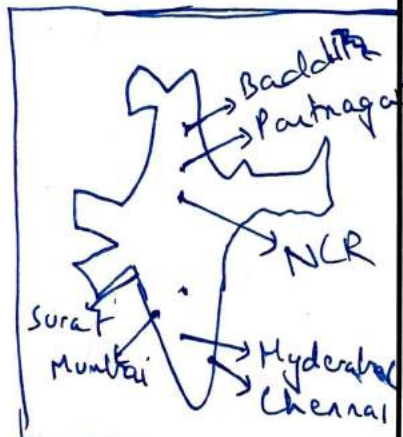 Baddi
Pantnaga
NCR
Surat
Mumbai
Hyderabad
Chennai